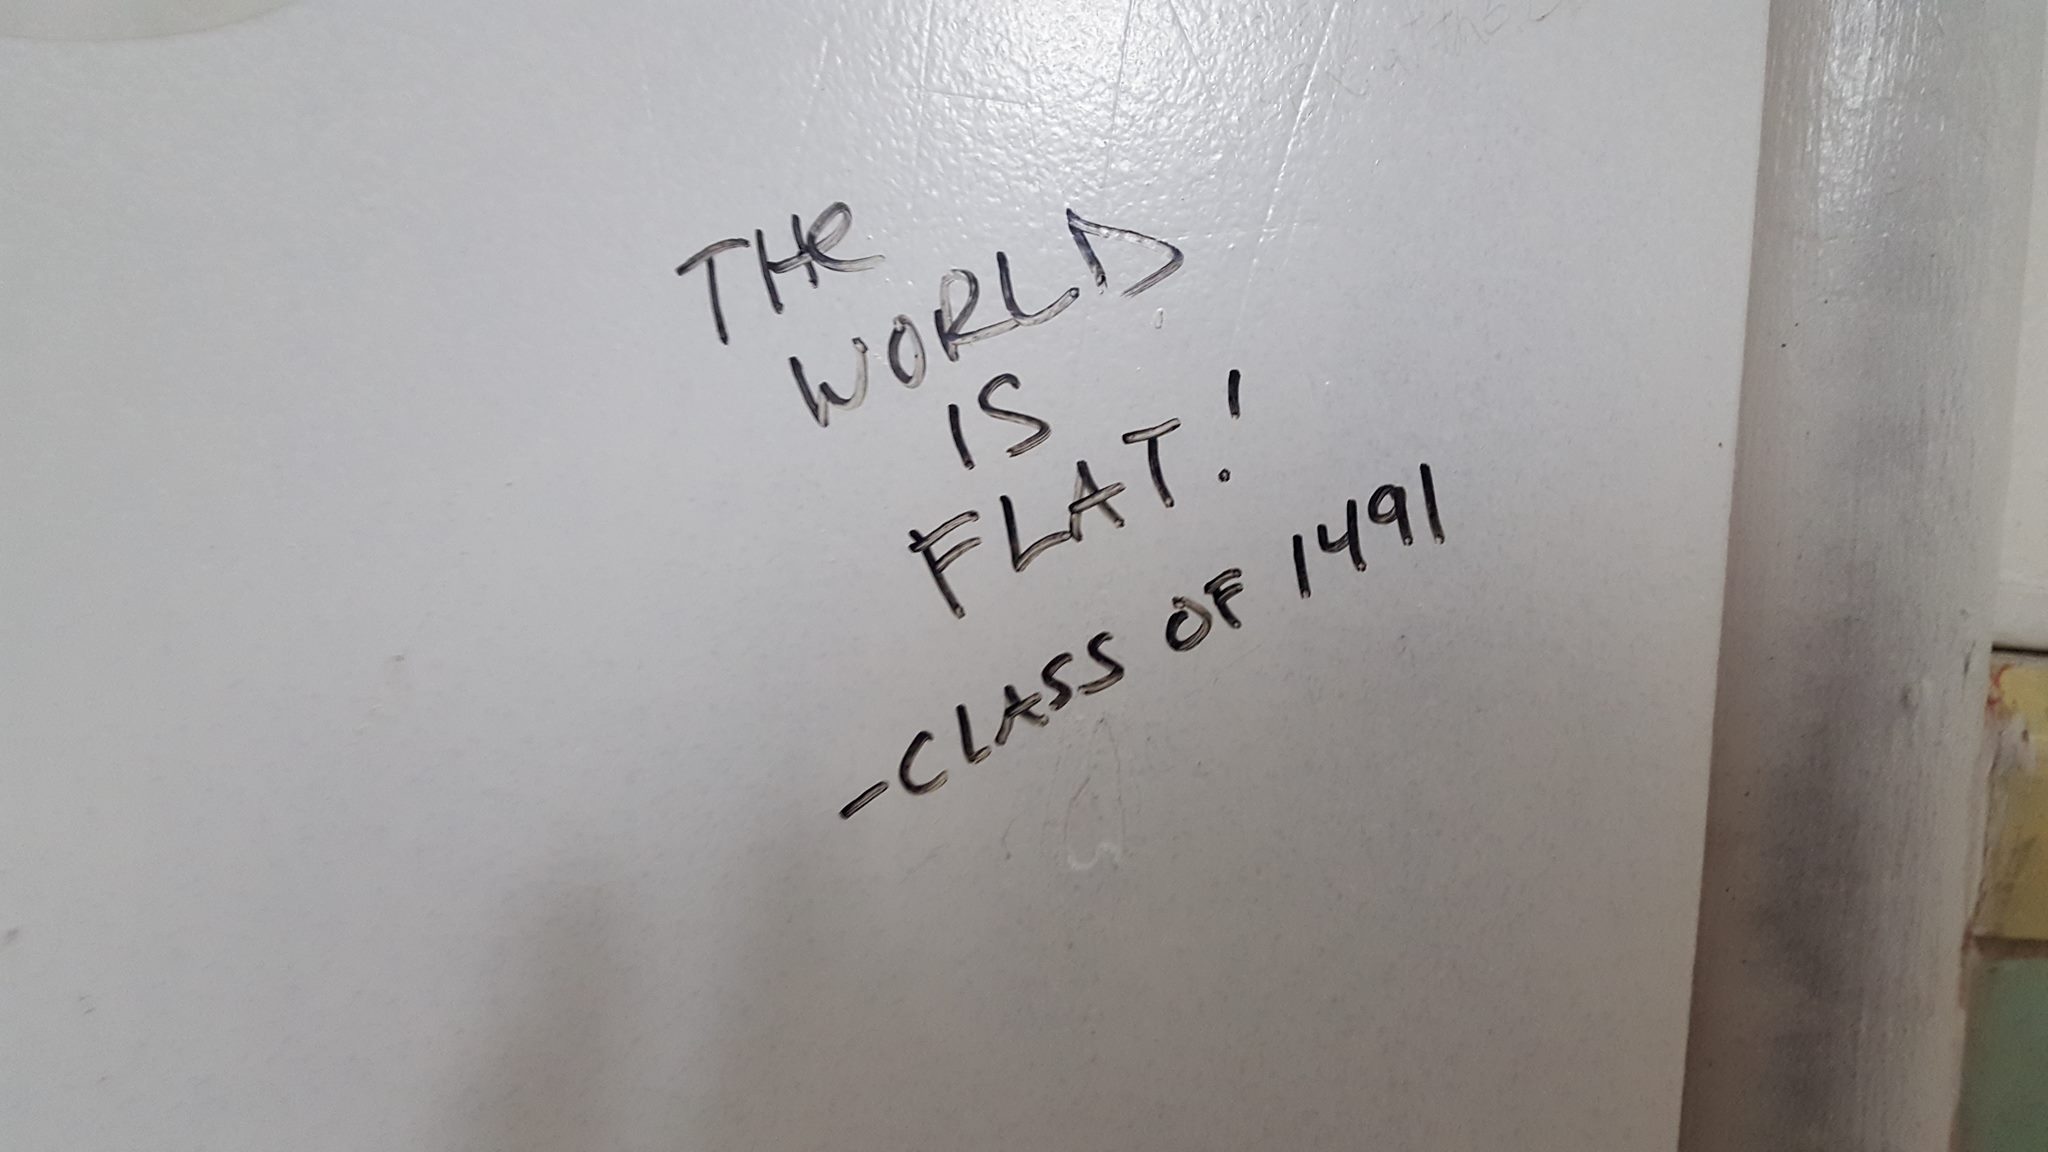 THe
WORLD
IS
FLAT!
-CLASS OF 1491